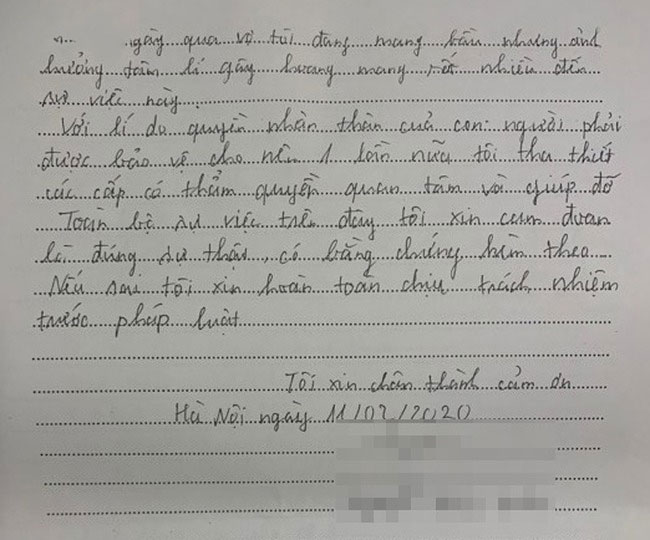 ngày qua vợ tôi đang mang bầu nhưng ảnh
hưởng tâm lí gây hoang mang rất nhiều đến
sự việc này.
Với lí do quyền nhân thân của con người phải
được bảo vệ cho nên 1 lần nữa tôi tha thiết
các cấp có thẩm quyền quan tâm và giúp đỡ
Toàn bộ sự việc trên đây tôi xin cam đoan
là đúng sự thật, có bằng chứng kèm theo
Nếu sai tôi xin hoàn toàn chịu trách nhiệm
trước pháp luật
Tôi xin chân thành cảm ơn
Hà Nội ngày 11/02/2020